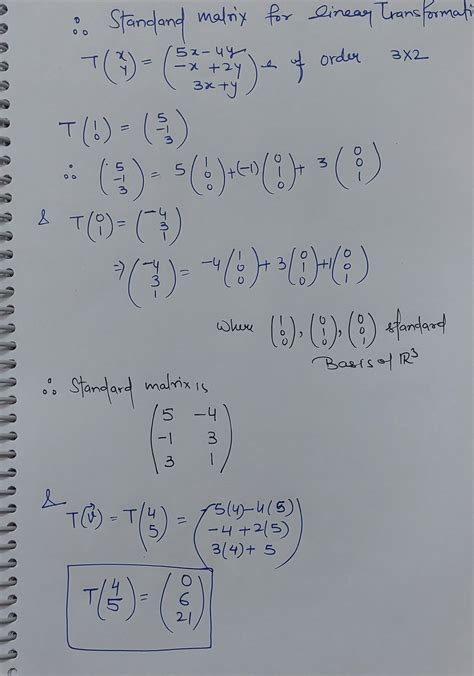 ∴ Standard matrix for linear Transformati
T(x y) = (5x-4y -x+2y 3x+y) is of order 3x2
T(1 0) = (5 -1 3)
∴ (5 -1 3) = 5(1 0 0)+(-1)(0 1 0)+ 3(0 0 1)
& T(0 1) = (-4 3 1)
⇒ (-4 3 1) = -4(1 0 0)+3(0 1 0)+1(0 0 1)
where (1 0 0), (0 1 0), (0 0 1) standard
Basis of ℝ³
∴ Standard matrix is
5 -4
-1 3
3 1
& T(v⃗) = T(4 5) = (5(4)-4(5) -4+2(5) 3(4)+5)
T(4 5) = (0 6 21)